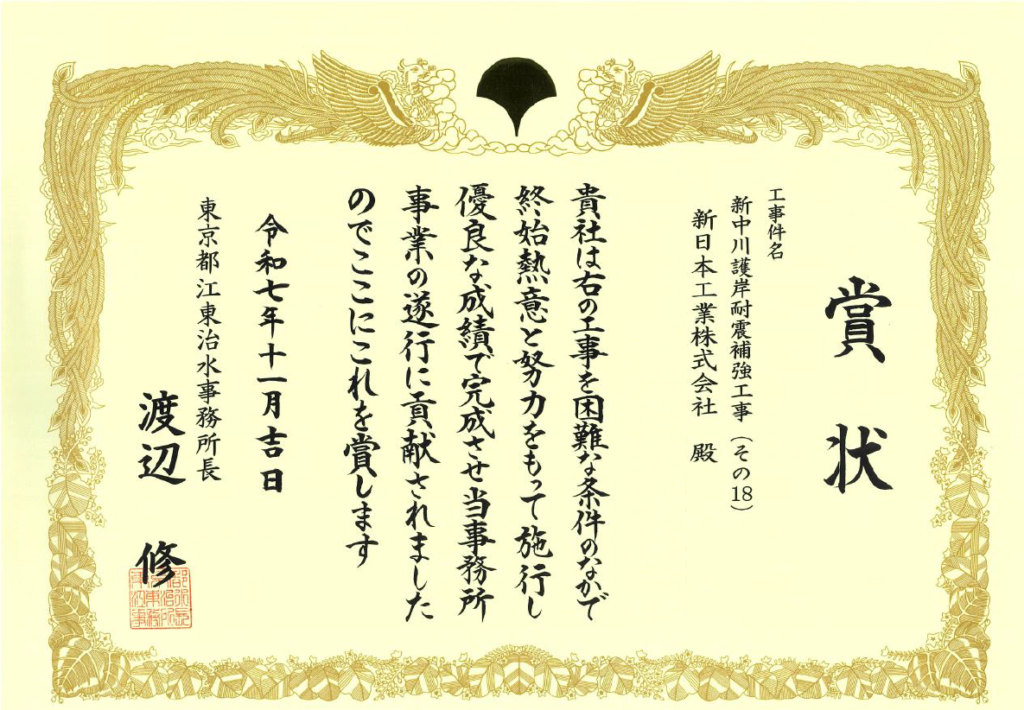 賞状
工事件名
新中川護岸耐震補強工事（その18）
新日本工業株式会社 殿
貴社は右の工事を困難な条件のなかで
終始熱意と努力をもって施行し
優良な成績で完成させ当事務所
事業の遂行に貢献されました
のでここにこれを賞します
令和七年十一月吉日
東京都江東治水事務所長
渡辺 修